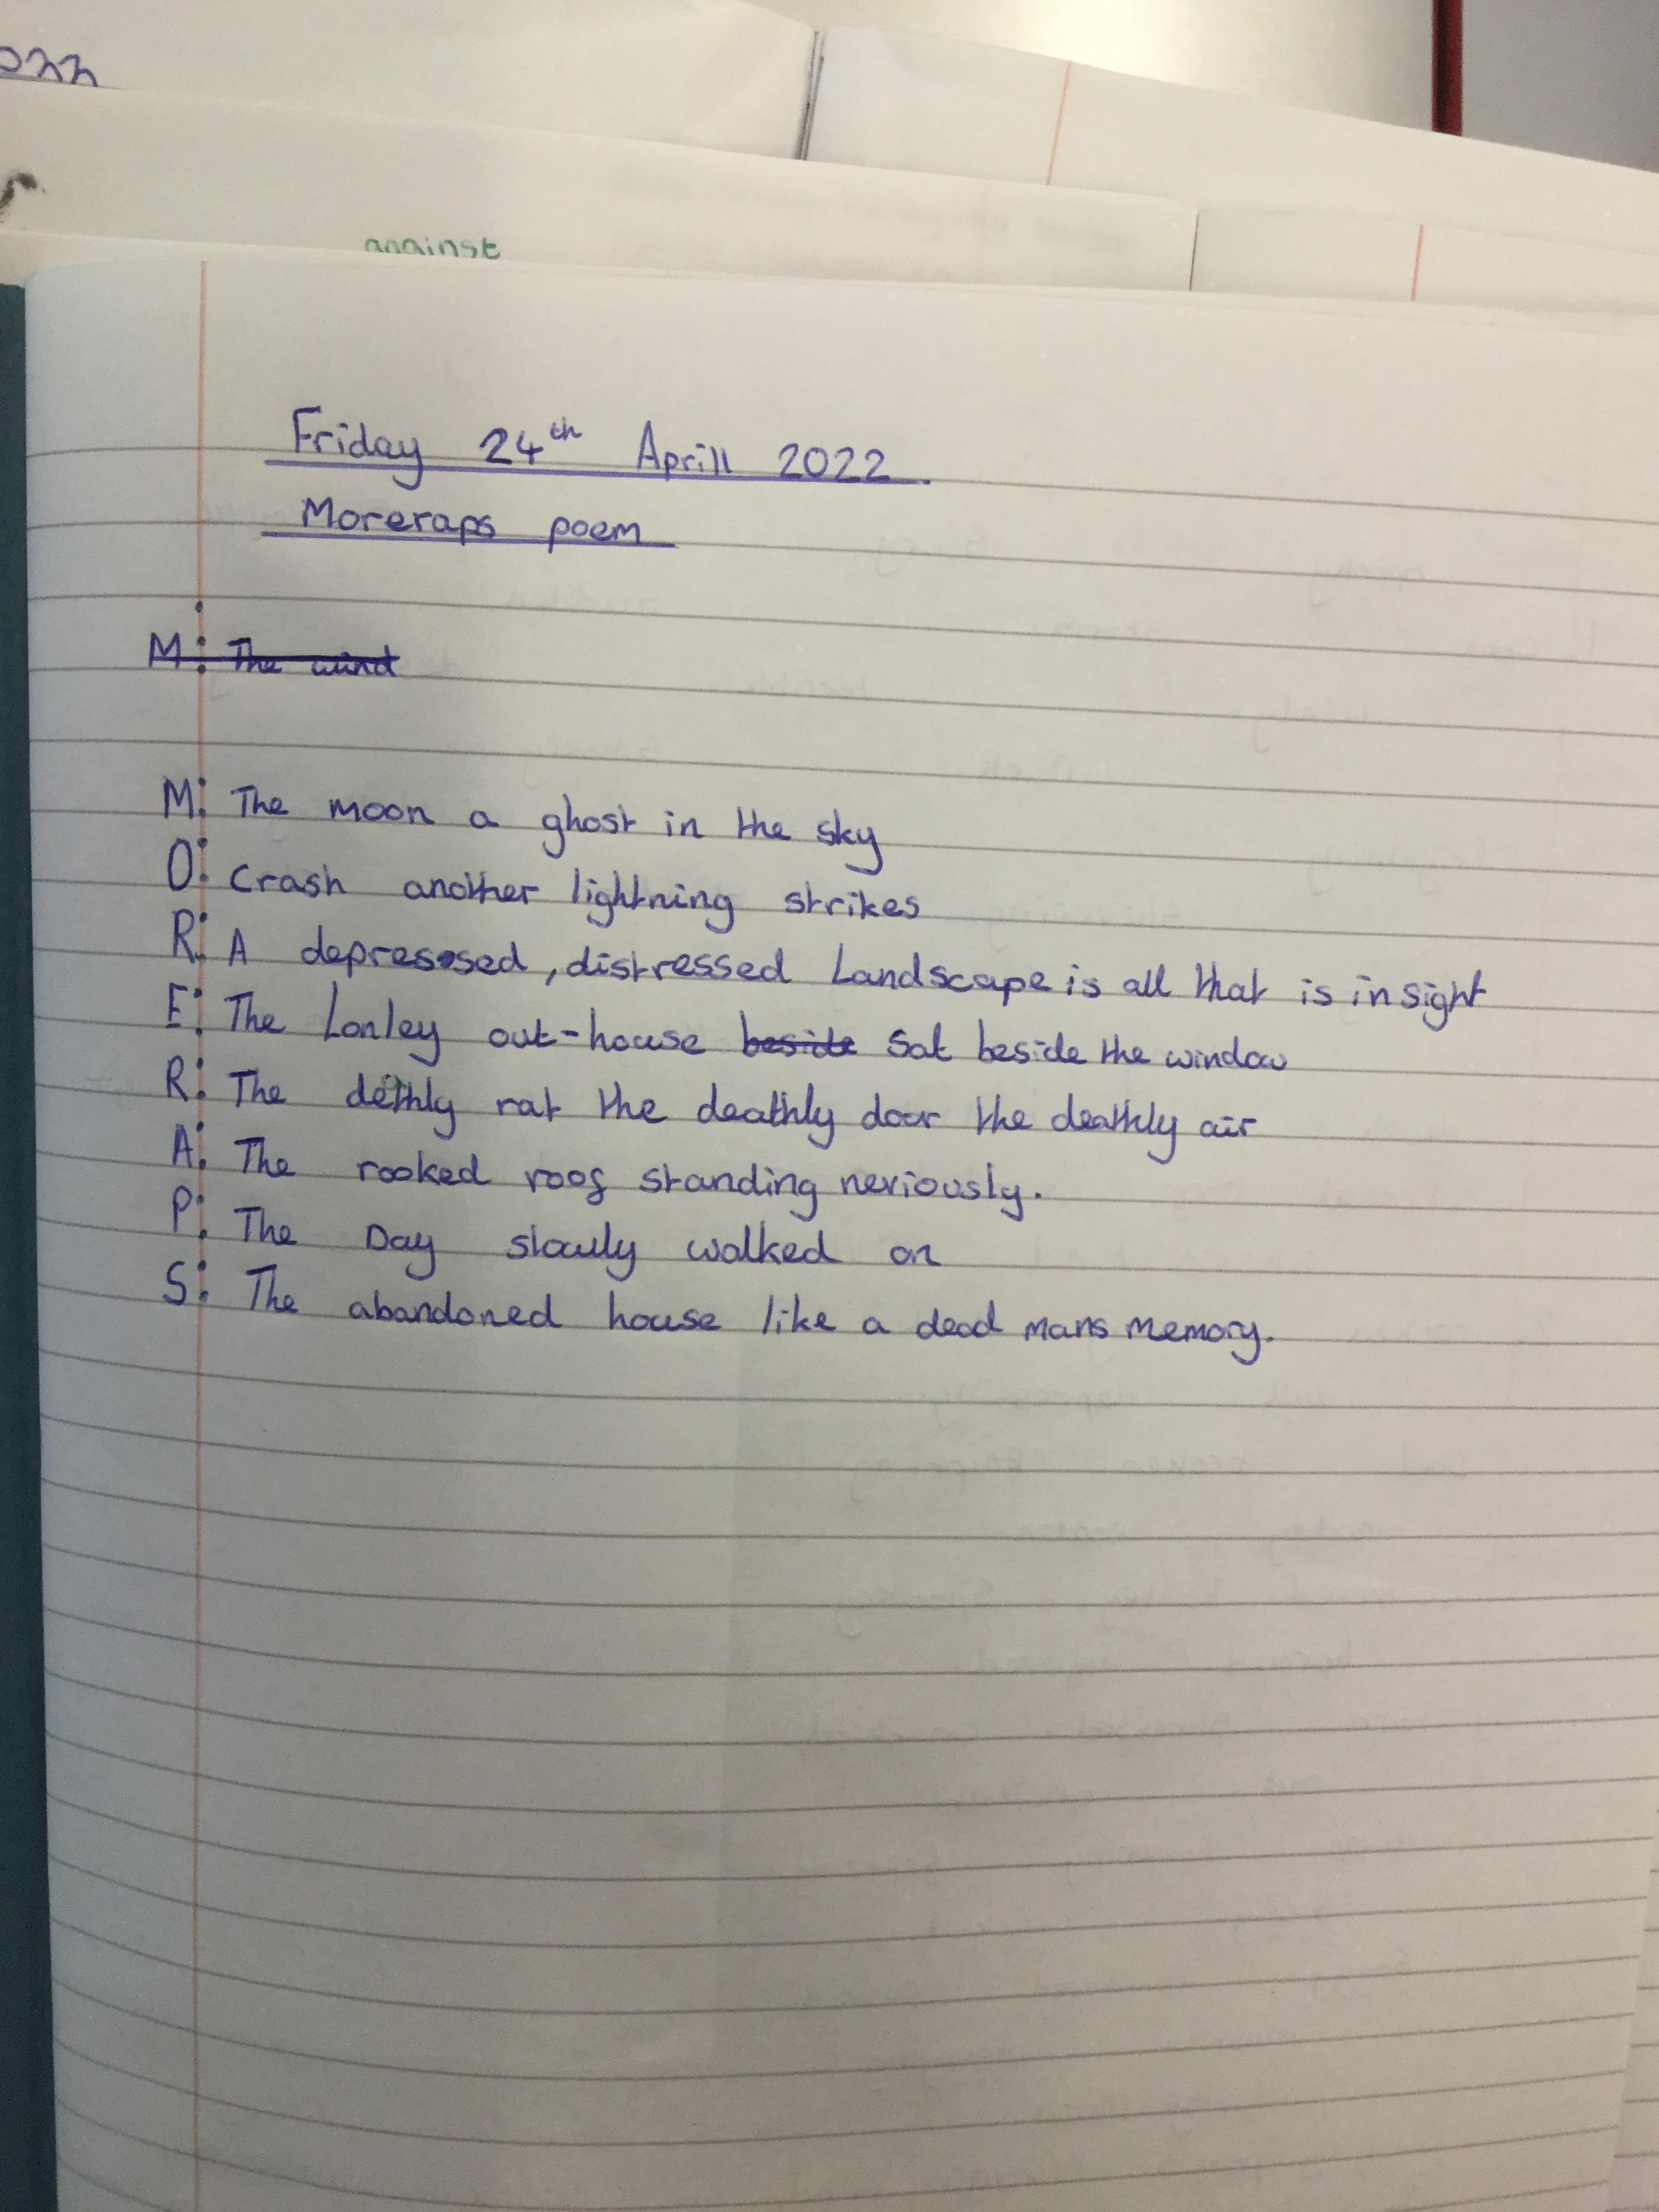 2022
against
Friday 24th Aprill 2022.
Moreraps poem
M: The wind
M: The moon a ghost in the sky
O: Crash another lightning strikes
R: A depressed, distressed Landscape is all that is in sight
E: The Lonley out-house beside Sat beside the window
R: The dethly rat the deathly door the deathly air
A: The rooked roof standing neriously.
P: The Day slowly walked on
S: The abandoned house like a dead mans memory.